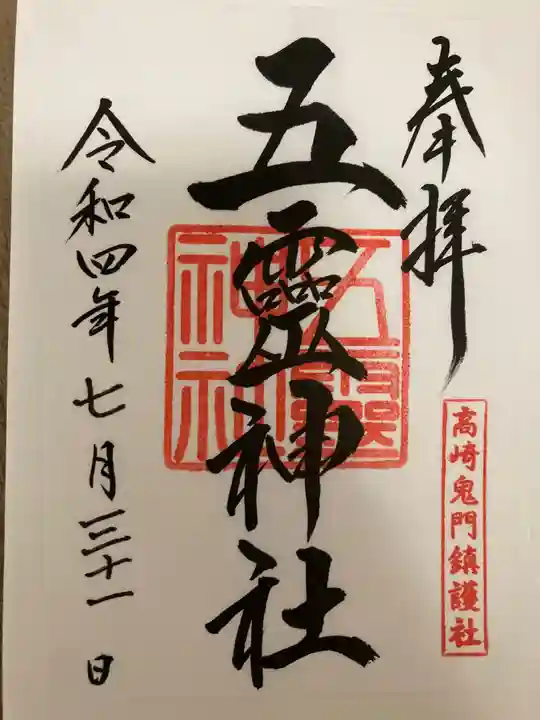 奉拝
高崎鬼門鎮護社
五靈神社
五靈神社
令和四年七月三十一日